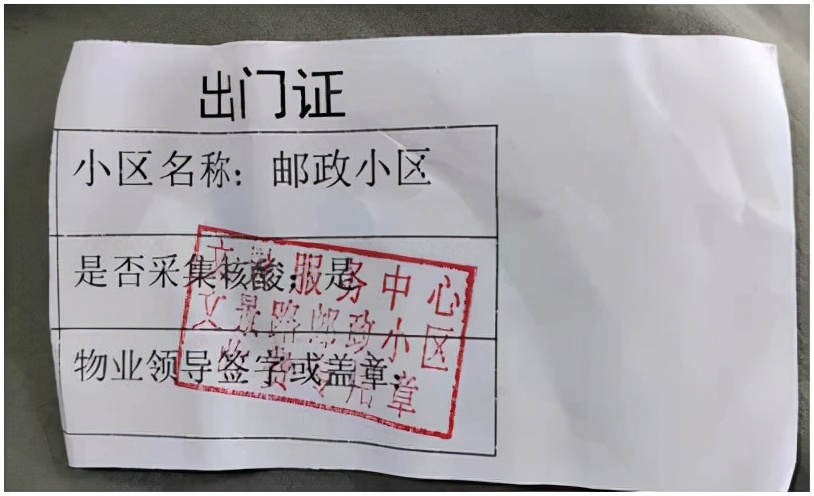 出门证
小区名称：邮政小区
是否采集核酸：是
物业领导签字或盖章：
服务中心
文景路邮政小区
章